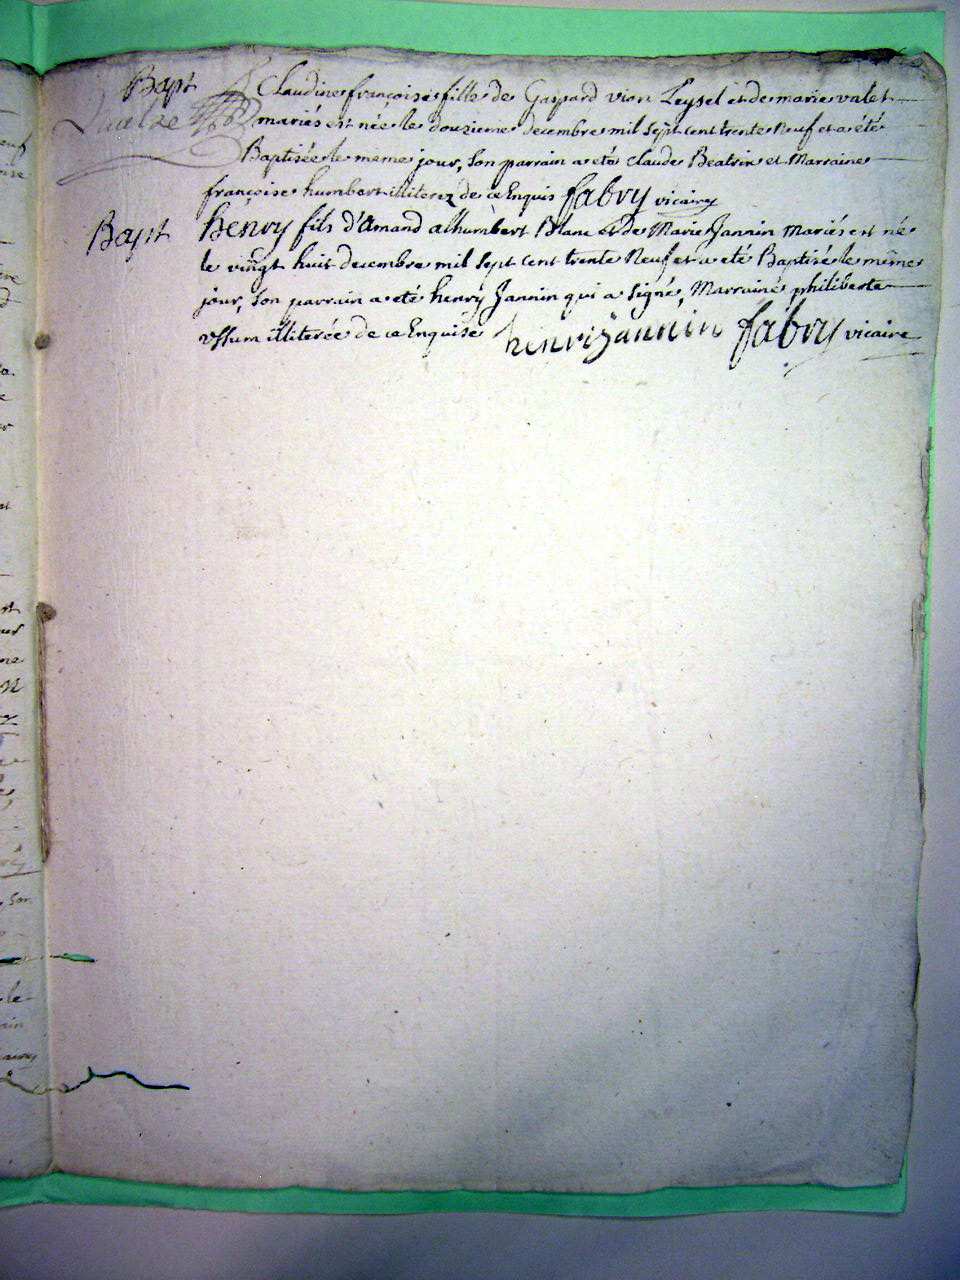 Bapt Claudine françoise fille de Gaspard vion Leysel et de marie valet
mariés est née le douzieme decembre mil sept cent trente Neuf et a été
Baptisée le meme jour, Son parrain a eté Claude Beatrix et Marraine
françoise humbert illiterez de ce Enquis fabry vicaire
Bapt henry fils d'Amand alhumbert Blanc et de Marie Jannin Mariés est né
le vingt huit decembre mil Sept cent trente Neuf et a eté Baptisé le même
jour, Son parrain a eté henry Jannin qui a Signé, Marraine philiberte
illiterée de ce Enquise henri jannin fabry vicaire